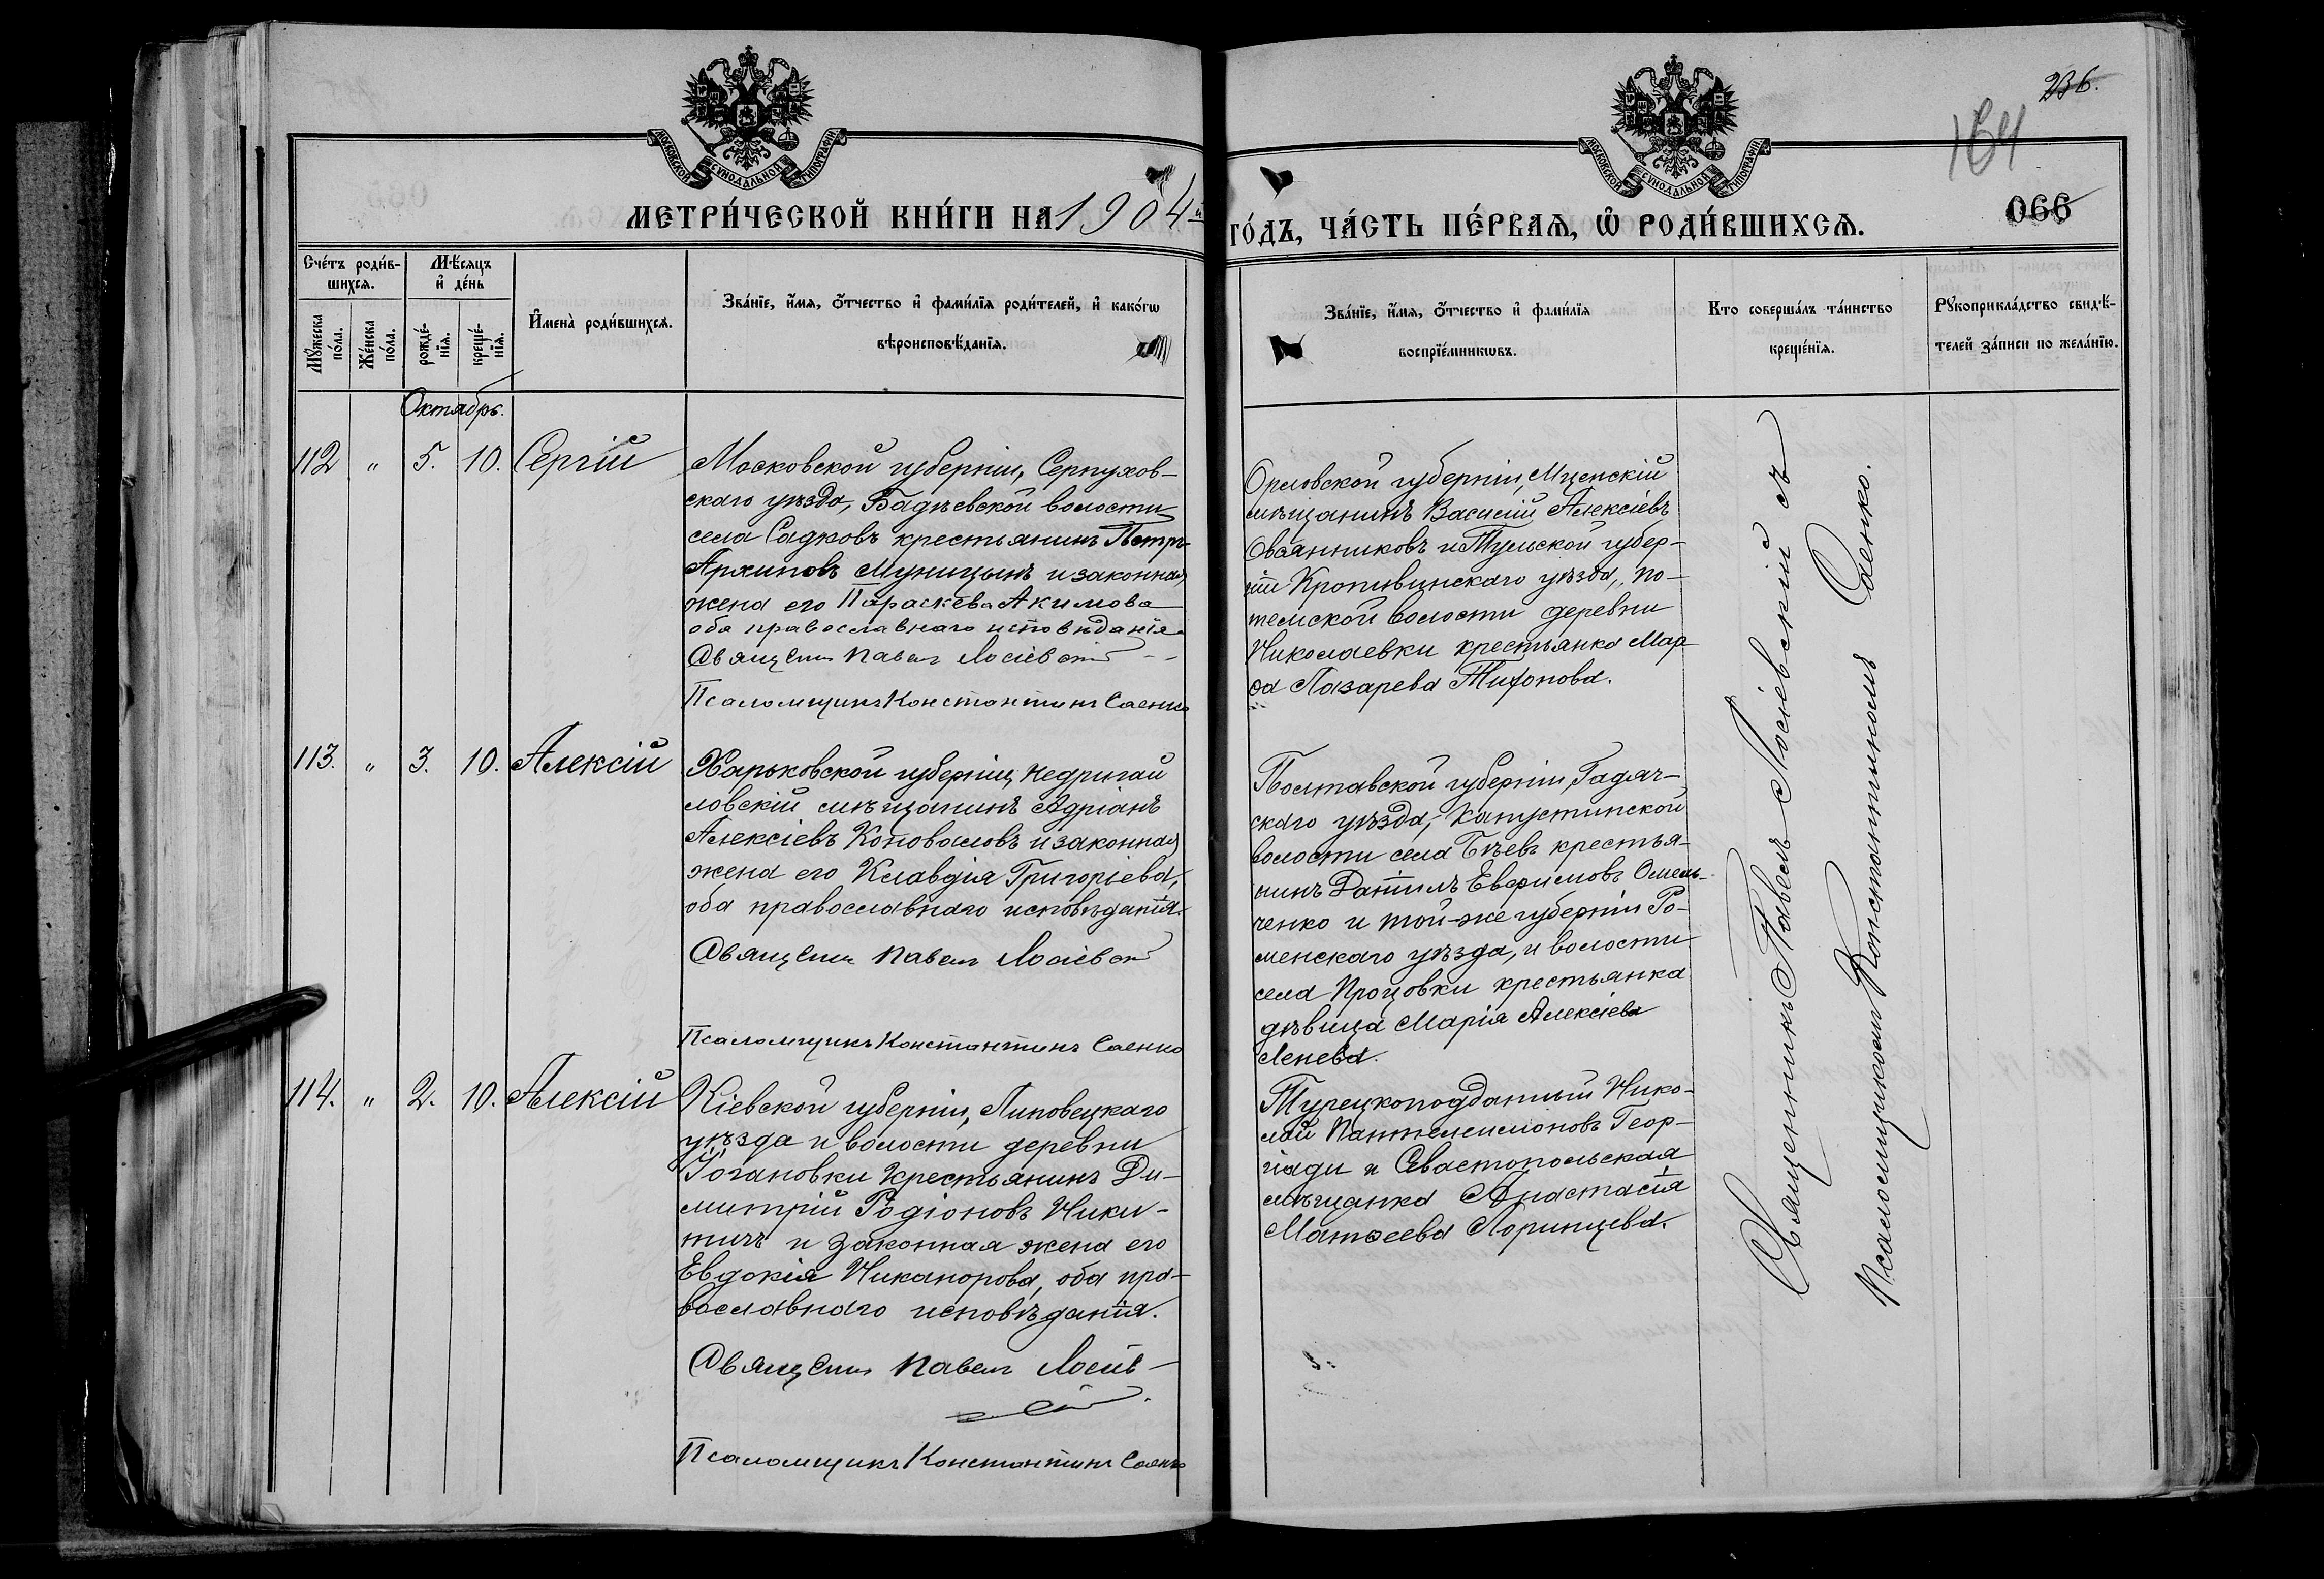 236.
164
066
МОСКОВСКОЙ СѴНОДАЛЬНОЙ ТИПОГРАФІИ
МОСКОВСКОЙ СѴНОДАЛЬНОЙ ТИПОГРАФІИ
МЕТРИ́ЧЕСКОЙ КНИ́ГИ НА 1904й
ГО́ДЪ, ЧА́СТЬ ПЕ́РВАѦ, Ѡ҆ РОДИ́ВШИХСѦ.
Сче́тъ роди́в-
шихсѧ.
Мꙋ́жеска
по́ла.
Же́нска
по́ла.
Мѣ́сѧцъ
и҆ де́нь
рожде́-
нїѧ.
креще́-
нїѧ.
И҆мена̀ роди́вшихсѧ.
Зва́нїе, и҆́мѧ, ѻ҆́тчество и҆ фами́лїѧ роди́телей, и҆ како́гѡ
вѣроисповѣ́данїѧ.
Зва́нїе, и҆́мѧ, ѻ҆́тчество и҆ фами́лїѧ
воспрїе́мникѡвъ.
Кто соверша́лъ та́инство
креще́нїѧ.
Рꙋкоприкла́дство свидѣ́-
телей за́писи по жела́нїю.
Октябрь.
112 " 5. 10. Сергій
Московской губерніи, Серпухов-
скаго уѣзда, Бадѣевской волости
села Садковъ крестьянинъ Петръ
Архиповъ Муницынъ и законная
жена его Параскева Акимова
оба православнаго исповѣданія
Священ. Павелъ Лосіевскій
Псаломщикъ Константинъ Саенко
Орловской губерніи, Мценскій
мѣщанинъ Василій Алексіевъ
Овсянниковъ и Тульской губер-
ніи Кропивинскаго уѣзда, По-
темской волости деревни
Николаевки крестьянка Мар-
ѳа Лазарева Тихонова.
113. " 3. 10. Алексій
Харьковской губерніи, Недригай
ловскій мѣщанинъ Адріанъ
Алексіевъ Коноваловъ и законная
жена его Клавдія Григоріева,
оба православнаго исповѣданія.
Священ. Павелъ Лосіевскій
Псаломщикъ Константинъ Саенко
Полтавской губерніи, Гадяч-
скаго уѣзда, Капустинской
волости села Бѣевъ крестья-
нинъ Даніилъ Евфимовъ Омель-
ченко и той-же губерніи Ро-
менскаго уѣзда, и волости
села Процовки крестьянка
дѣвица Марія Алексіева
Ленева.
114. " 2. 10. Алексій
Кіевской губерніи, Липовецкаго
уѣзда и волости деревни
крестьянинъ Ди-
митрій Родіоновъ Ники-
тичъ и законная жена его
Евдокія Никанорова, оба пра-
вославнаго исповѣданія.
Священ. Павелъ Лосіев-
скій.
Псаломщикъ Константинъ Саенко
Турецкоподданный Нико-
лай Пантелеимоновъ Геор-
гіади и Севастопольская
мѣщанка Анастасія
Матѳеева Лоринцева.
Священникъ Павелъ Лосіевскій съ
Псаломщикомъ Константиномъ Саенко.